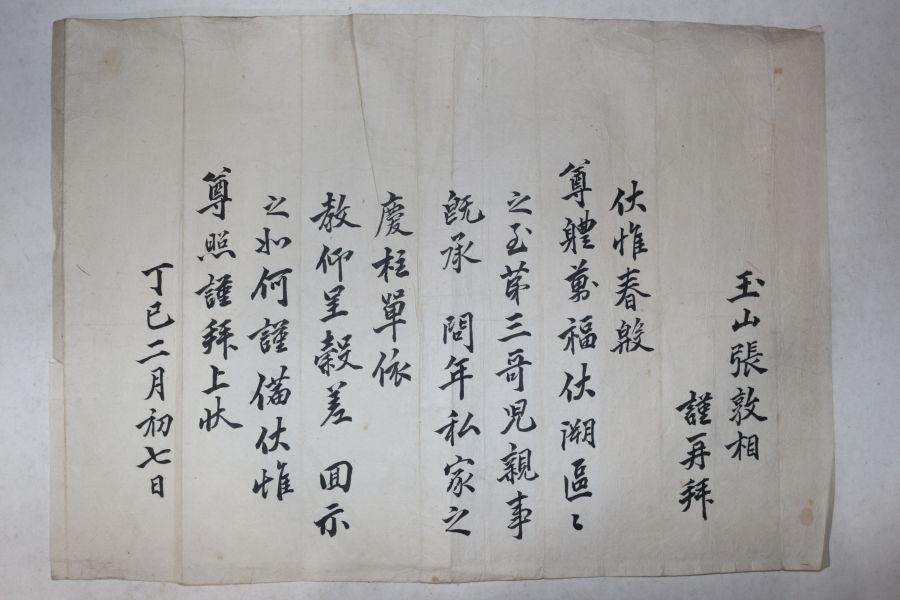 玉山張敦相
謹再拜
伏惟春殷
尊體萬福伏溯區〻
之至第三哥兒親事
旣承 問年私家之
慶柱單依
敎仰呈穀差 回示
之如何謹備伏惟
尊照謹拜上狀
丁巳二月初七日